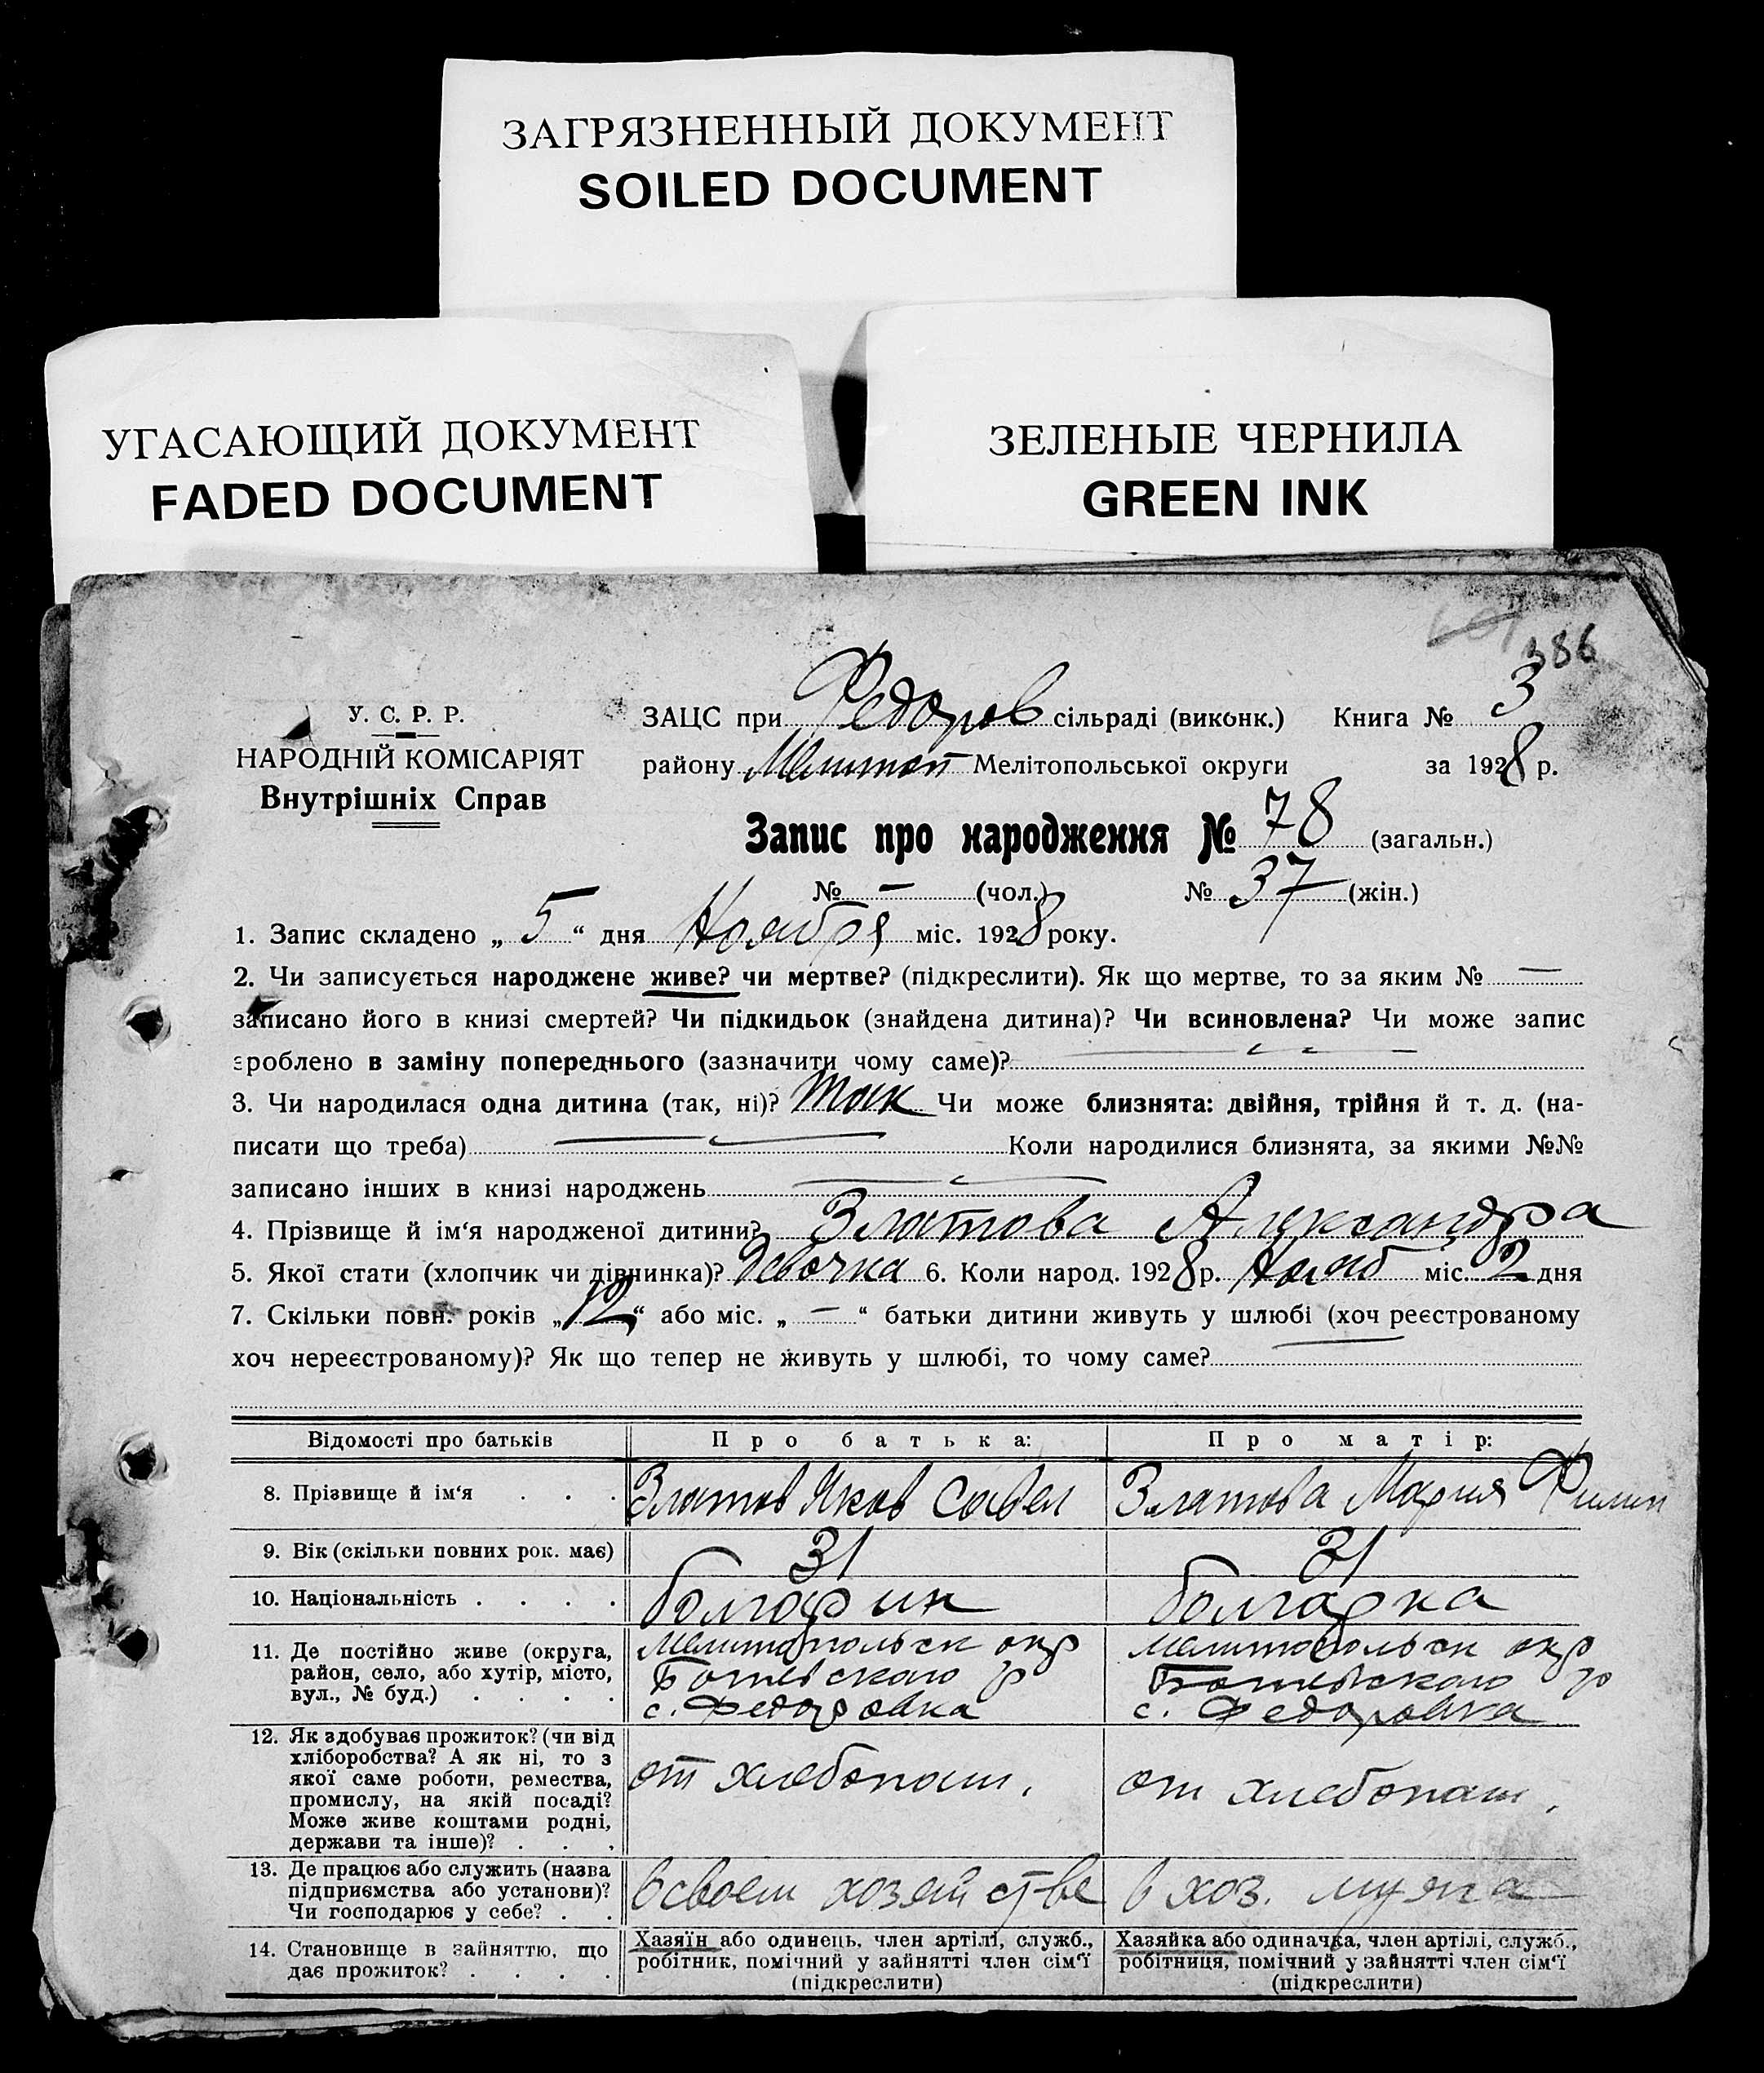 ЗАГРЯЗНЕННЫЙ ДОКУМЕНТ
SOILED DOCUMENT
УГАСАЮЩИЙ ДОКУМЕНТ
FADED DOCUMENT
ЗЕЛЕНЫЕ ЧЕРНИЛА
GREEN INK
386
У. С. Р. Р.
НАРОДНІЙ КОМІСАРІЯТ
Внутрішніх Справ
ЗАЦС при Федоров сільраді (виконк.) Книга № 3
району Мелитоп Мелітопольської округи за 1928 р.
Запис про народження № 78 (загальн.)
№ — (чол.) № 37 (жін.)
1. Запис складено „ 5 “ дня Ноября міс. 1928 року.
2. Чи записується народжене живе? чи мертве? (підкреслити). Як що мертве, то за яким № —
записано його в книзі смертей? Чи підкидьок (знайдена дитина)? Чи всиновлена? Чи може запис
зроблено в заміну попереднього (зазначити чому саме)?
3. Чи народилася одна дитина (так, ні)? так Чи може близнята: двійня, трійня й т. д. (на-
писати що треба) Коли народилися близнята, за якими №№
записано інших в книзі народжень
4. Прізвище й ім‘я народженої дитини? Златова Александра
5. Якої стати (хлопчик чи дівчинка)? девочка 6. Коли народ. 1928 р. Нояб міс. 2 дня
7. Скільки повн. років „ 12 “ або міс. „ — “ батьки дитини живуть у шлюбі (хоч реєстрованому
хоч нереєстрованому)? Як що тепер не живуть у шлюбі, то чому саме?
Відомості про батьків Про батька: Про матір:
8. Прізвище й ім‘я . . . Златов Яков Савел Златова Мария Филип
9. Вік (скільки повних рок. має) 31 31
10. Національність . . . . болгарин болгарка
11. Де постійно живе (округа,
район, село, або хутір, місто,
вул., № буд.) . . . .
Мелитопольск окр
Ботевского р
с. Федоровка
Мелитопольск окр
Ботевского р
с. Федоровка
12. Як здобуває прожиток? (чи від
хліборобства? А як ні, то з
якої саме роботи, ремества,
промислу, на якій посаді?
Може живе коштами родні,
держави та інше)? . . .
от хлебопаш.
от хлебопаш.
13. Де працює або служить (назва
підприємства або установи)?
Чи господарює у себе? . .
в своем хозяйстве
в хоз. мужа
14. Становище в зайняттю, що
дає прожиток? . . . .
Хазяїн або одинець, член артілі, служб.,
робітник, помічний у зайнятті член сім‘ї
(підкреслити)
Хазяйка або одиначка, член артілі, служб.,
робітниця, помічний у зайнятті член сім‘ї
(підкреслити)